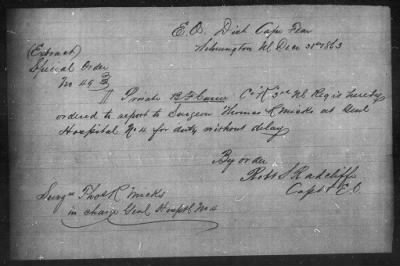 E.O. Dist Cape Fear
Wilmington NC Dec 31st 1863
(Extract)
Special Order
No 49
II Private Co K 3rd NC Reg is hereby
ordered to report to Surgeon Thomas R Micks at Genl
Hospital No 4 for duty without delay
By order
Robt S Radcliffe
Capt & E.O.
Surgn Thos R Micks
in charge Genl Hosptl No 4